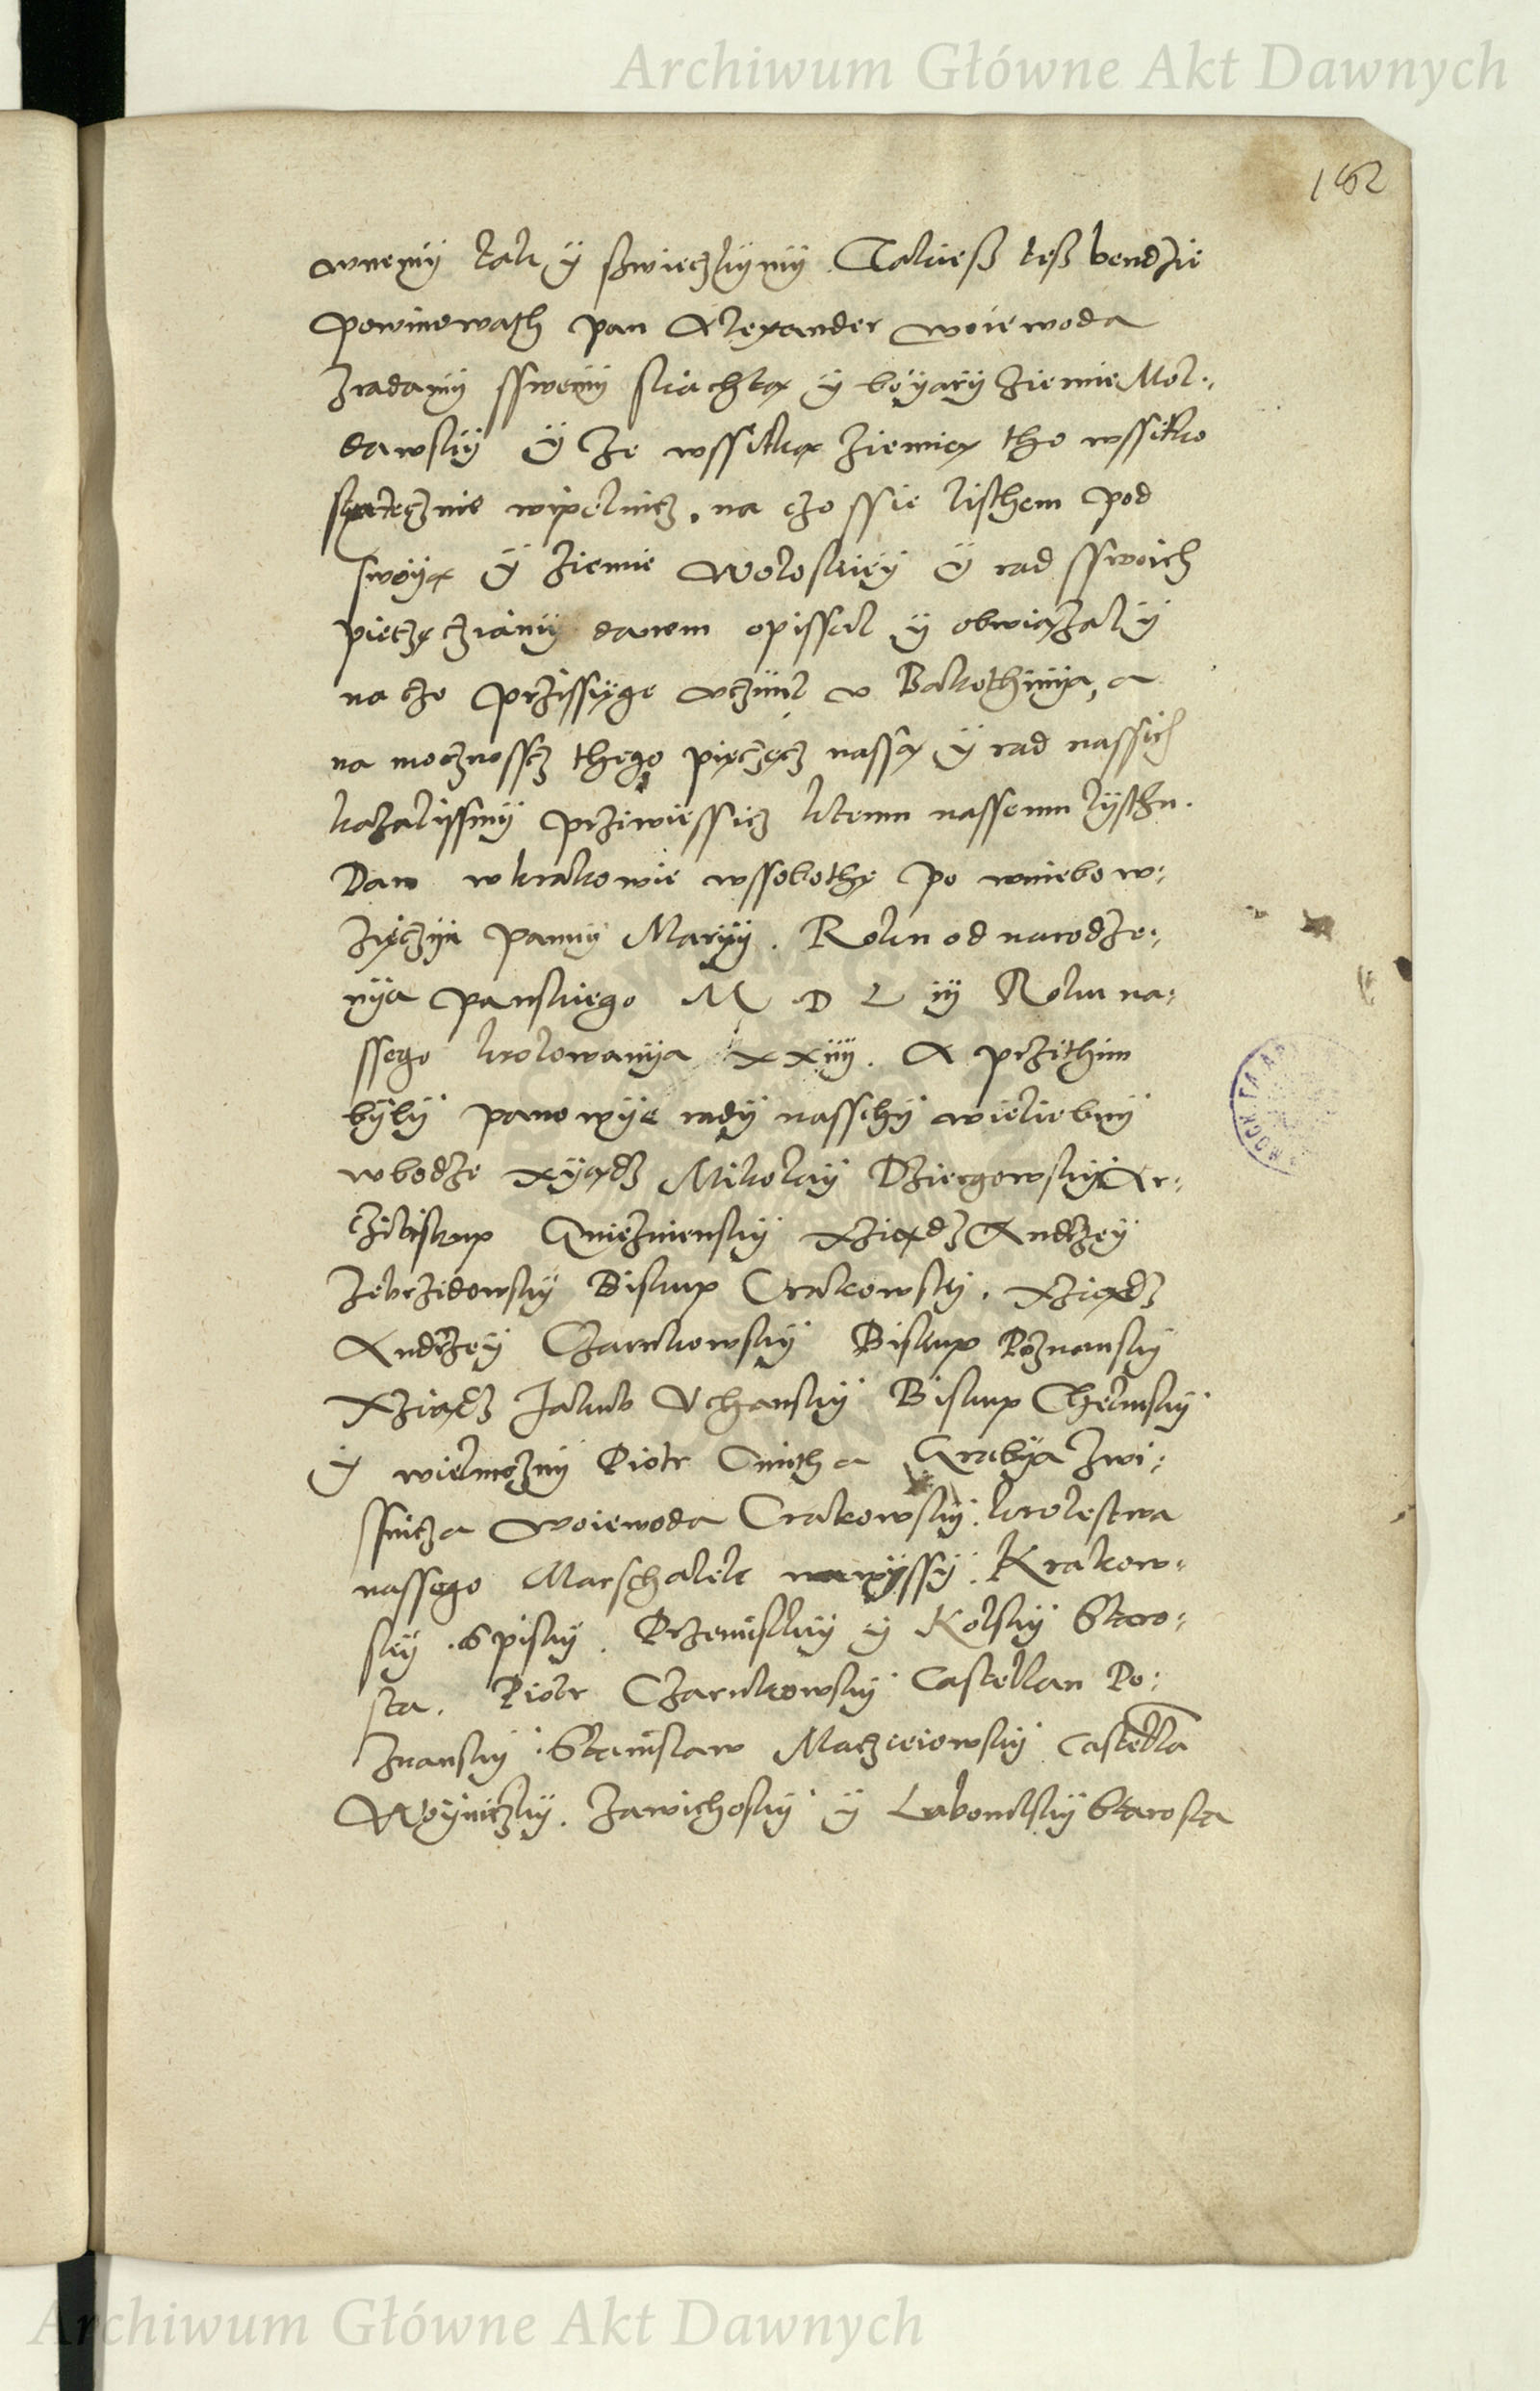 Archiwum Główne Akt Dawnych
182
wnemÿ tak ÿ sswieczkÿmÿ Takiesz tesz bendzie
powinowath pan Alexander woiewoda
zradamÿ sswemÿ sliachtą ÿ boÿarÿ ziemie Mol:
dawskÿ ÿ ze wssitką ziemią tho wssitko
statecznie wipelnicz. na czo ssie listhem pod
swoÿą ÿ ziemie Woloskieÿ ÿ rad sswoich
pieczęcziamÿ danem opissal ÿ obwiązalÿ
na czo przissÿgę uczinil v Bakothinÿa, a
na mocznosscz thego pięczęcz nassą ÿ rad nassich
kazalissmÿ prziwiessicz ktemu nassemu lÿsthu.
Dan w krakowie wssobothę po wniebow:
zięczÿu pannÿ Marÿÿ. Roku od narodze:
nÿa panskiego M D L iÿ Roku na:
ssego krolowanÿa xxiiÿ. A przithim
bÿlÿ panowÿe radÿ nasschÿ wieliebnÿ
wbodze xÿądz Mikolaÿ Dziergowskÿ Ar:
zibiskup Gnieznienskÿ Xziądz Andrzeÿ
Zebrzidowskÿ Biskup Crakowskÿ. Xziądz
Andrzeÿ Czarnkowskÿ Biskup Poznanskÿ
Xziądz Jakub Vchanskÿ Biskup Chelmskÿ
ÿ wielmoznÿ Piotr Cmitha Grabÿa zwi:
ssnicza woiewoda Crakowskÿ. krolestwa
nassego Marschalek nawÿssÿ. Krakow:
skÿ. Spiskÿ. Przemislkÿ ÿ Kolskÿ Staro:
sta. Piotr Czarnkowskÿ Castellan Po:
znanskÿ. Stanislaw Maczieiowskÿ Castella
Woÿniczkÿ. Zawichoskÿ ÿ Lubomlskÿ Starosta
Archiwum Główne Akt Dawnych